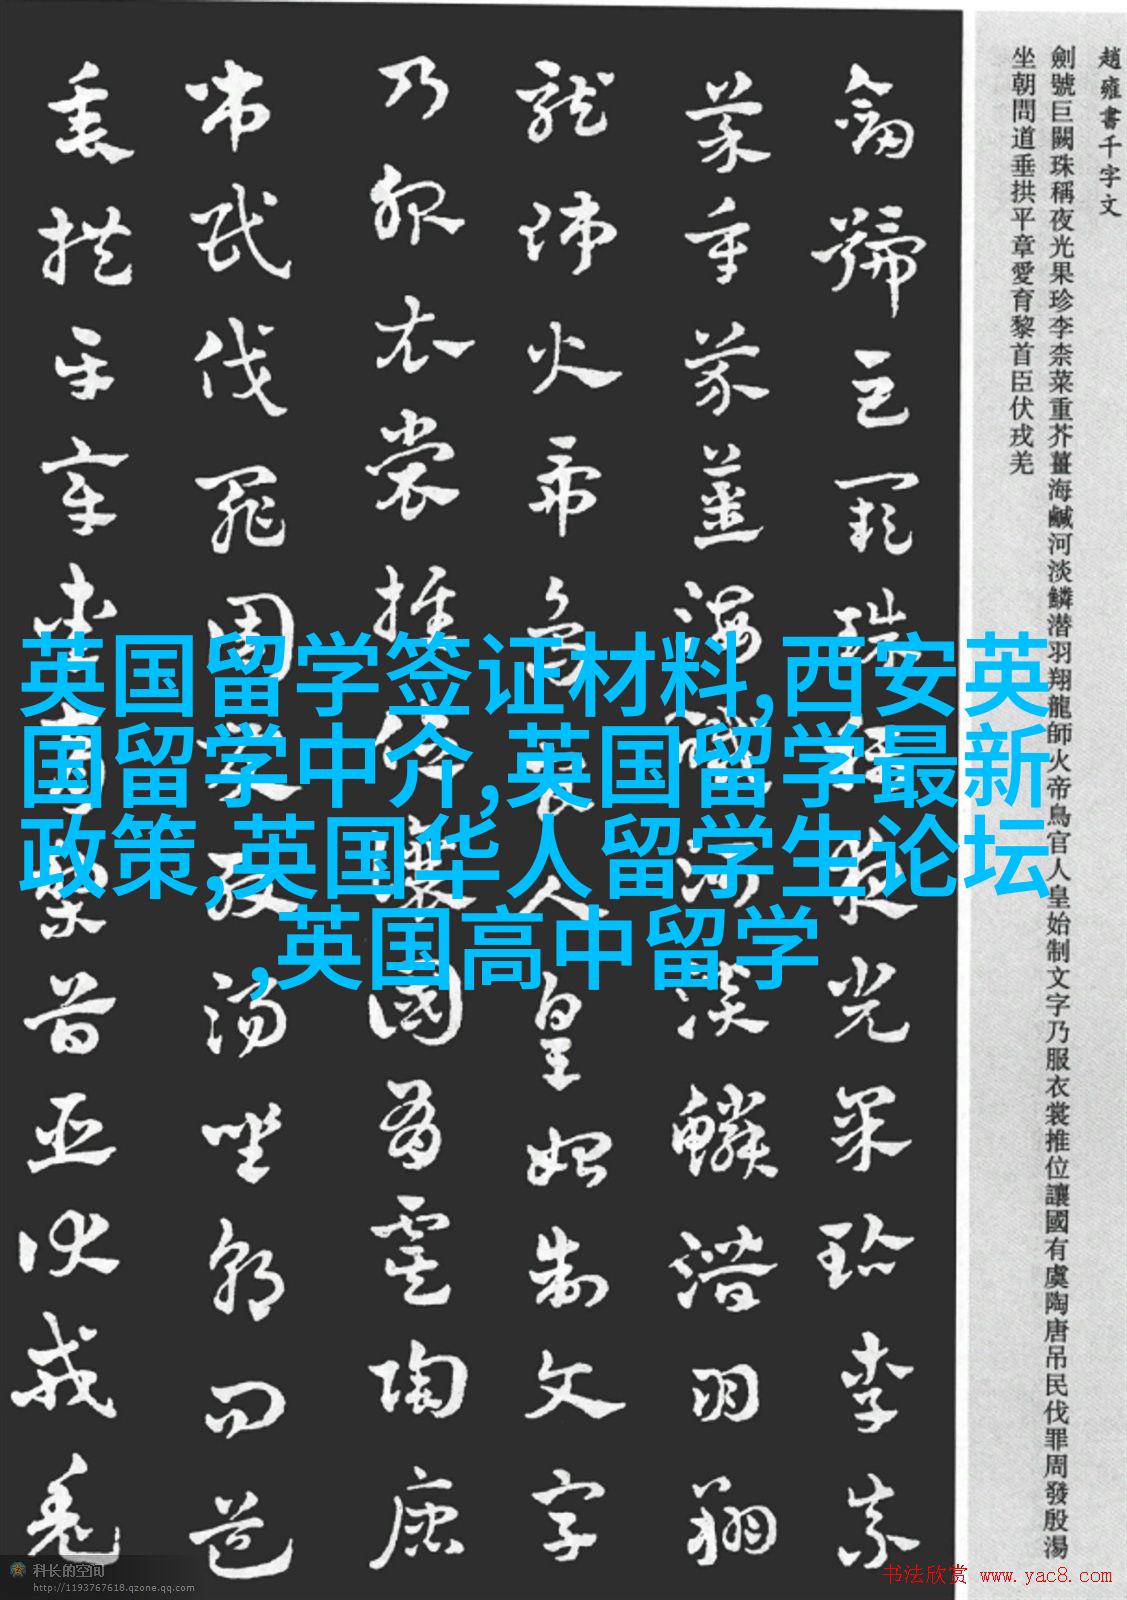 趙雍書千字文
劍號巨闕珠稱夜光果珍李柰菜重芥薑海鹹河淡鱗潜羽翔龍師火帝鳥官人皇始制文字乃服衣裳推位讓國有虞陶唐吊民伐罪周發殷湯
坐朝問道垂拱平章愛育黎首臣伏戎羌
劍號巨闕珠稱夜光果珍李柰
菜重芥薑海鹹河淡鱗潛羽翔
龍師火帝鳥官人皇始制文字
乃服衣裳推位讓國有虞陶唐
弔民伐罪周發殷湯坐朝問道
垂拱平章愛育黎首臣伏戎羌
英国留学签证材料,西安英
国留学中介,英国留学最新
政策,英国华人留学生论坛
,英国高中留学
科长的空间
http://1193767618.qzone.qq.com
书法欣赏 www.yac8.com